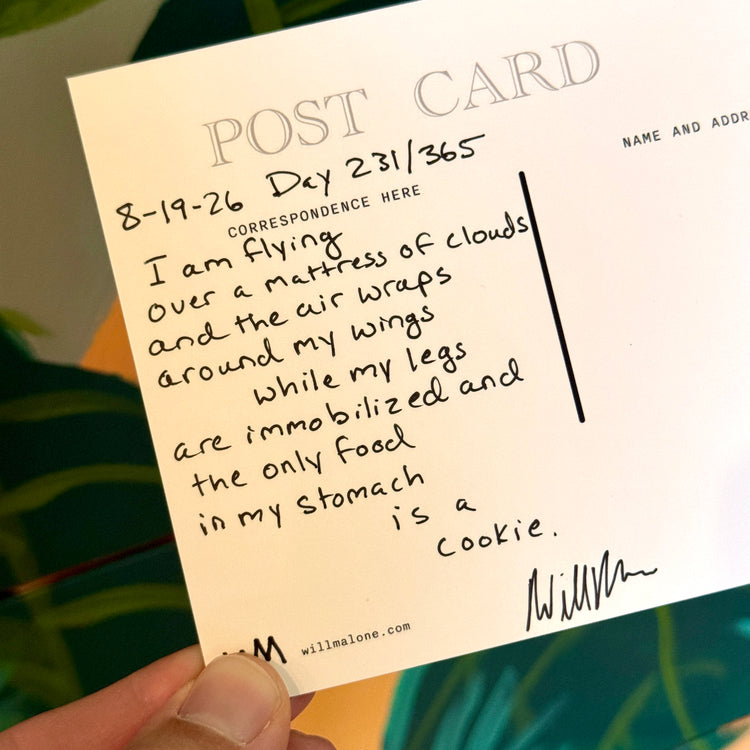 POST CARD
8-19-26 Day 231/365
CORRESPONDENCE HERE
NAME AND ADDR
I am flying
over a mattress of clouds
and the air wraps
around my wings
while my legs
are immobilized and
the only food
in my stomach
is a
cookie.
WillM
M willmalone.com